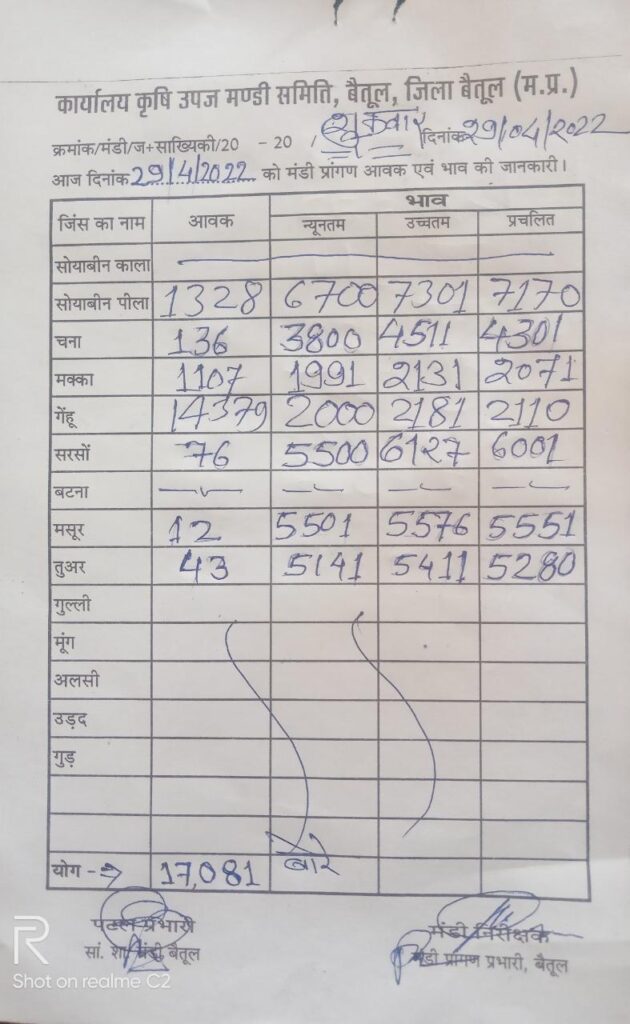 कार्यालय कृषि उपज मण्डी समिति, बैतूल, जिला बैतूल (म.प्र.)
क्रमांक/मंडी/ज+साख्यिकी/20 - 20 / शुक्रवार दिनांक 29/04/2022
आज दिनांक 29/4/2022 को मंडी प्रांगण आवक एवं भाव की जानकारी।
जिंस का नाम आवक भाव
न्यूनतम उच्चतम प्रचलित
सोयाबीन काला
सोयाबीन पीला 1328 6700 7301 7170
चना 136 3800 4511 4301
मक्का 1107 1991 2131 2071
गेंहू 14379 2000 2181 2110
सरसों 76 5500 6127 6001
बटना
मसूर 12 5501 5576 5551
तुअर 43 5141 5411 5280
गुल्ली
मूंग
अलसी
उड़द
गुड़
योग -> 17,081 बोरे
प्रभारी मंडी निरीक्षक
सां. शा. मंडी, बैतूल मंडी प्रांगण प्रभारी, बैतूल
R
Shot on realme C2